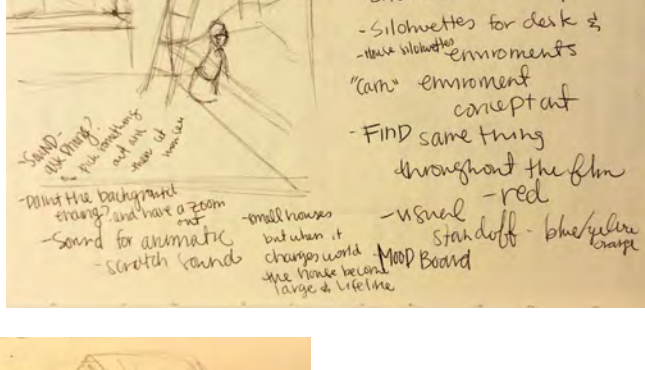 - Silohuettes for desk &
- House silohuettes enviroments
"Calm" enviroment
concept art
- FIND same thing
throughout the film
- red
- usual
standoff - blue/yellow
orange
MOOD Board
- SOUND -
ask
pick something
out and
then let
- Paint the background
ending? and have a zoom
out
- Sound for animatic
- scratch sounds
- small houses
but when it
changes world
the house become
large & lifeline